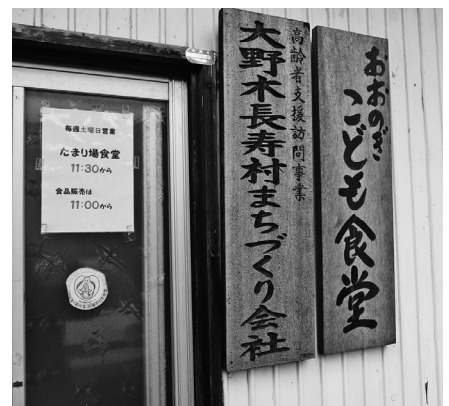 毎週土曜日営業
たまり場食堂
11:30から
食品販売は
11:00から
高齢者支援訪問事業
大野木長寿村まちづくり会社
おおのぎ
こども食堂